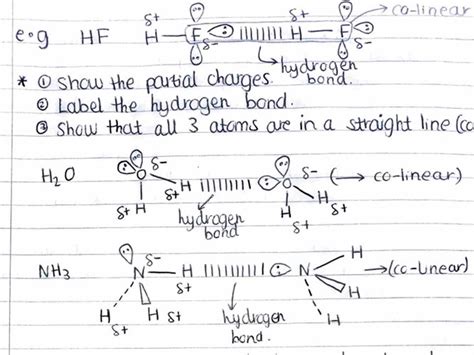 e.g HF H δ+ F δ- |||||||| H δ+ F δ- → co-linear
hydrogen bond.
* ① Show the partial charges.
② Label the hydrogen bond.
③ Show that all 3 atoms are in a straight line (co
H2O O δ- H δ+ H δ+ |||||||| O δ- H δ+ H δ+ (→ co-linear)
hydrogen bond
NH3 N δ- H δ+ H δ+ H δ+ |||||||||| N H H H → (co-linear)
hydrogen bond.